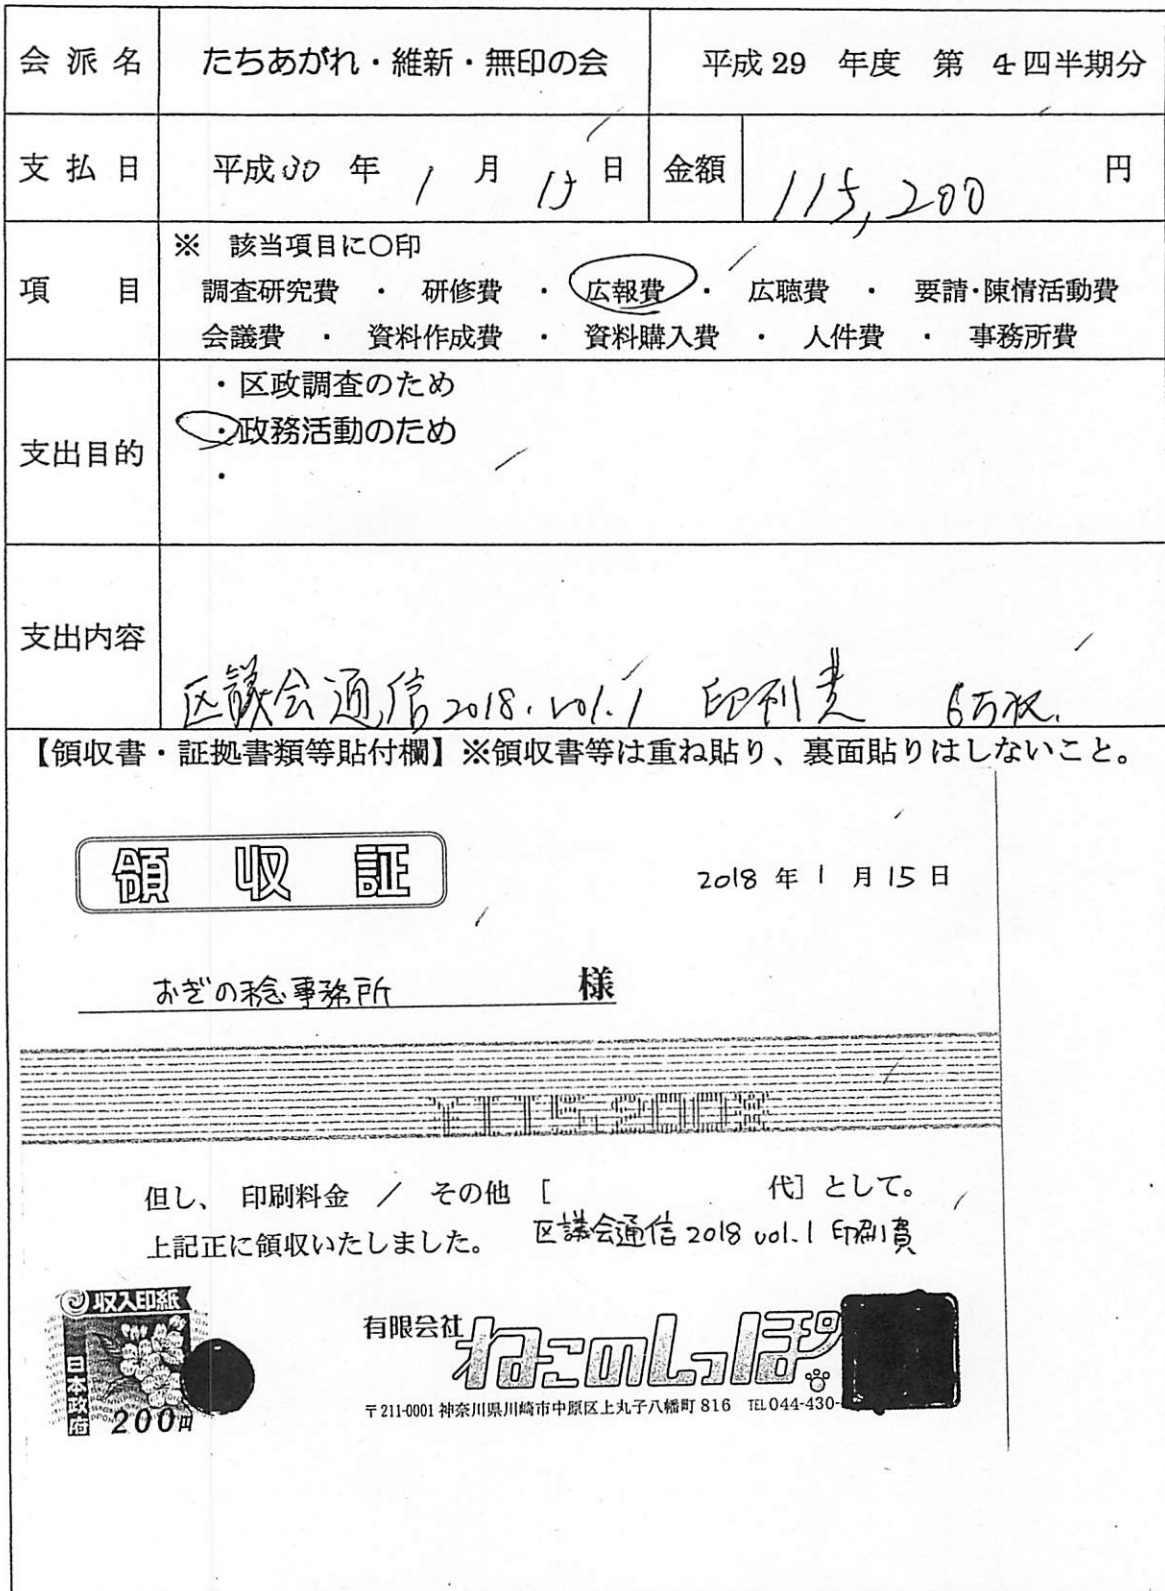 会派名 たちあがれ・維新・無印の会 平成29 年度 第 4四半期分
支払日 平成30 年 1 月 15 日 金額 115,200 円
項目 ※ 該当項目に〇印
調査研究費 ・ 研修費 ・ 広報費 ・ 広聴費 ・ 要請・陳情活動費
会議費 ・ 資料作成費 ・ 資料購入費 ・ 人件費 ・ 事務所費
支出目的 ・区政調査のため
・政務活動のため
・
支出内容 区議会通信2018.vol.1 印刷費 6万枚.
【領収書・証拠書類等貼付欄】※領収書等は重ね貼り、裏面貼りはしないこと。
領収証 2018 年 1 月 15 日
おぎの稔事務所 様
¥115,200※
但し、 印刷料金 / その他 [ 代] として。
上記正に領収いたしました。 区議会通信2018 vol.1 印刷費
収入印紙
日本政府
200円
有限会社 ねこのしっぽ
〒211-0001 神奈川県川崎市中原区上丸子八幡町 816 TEL 044-430-